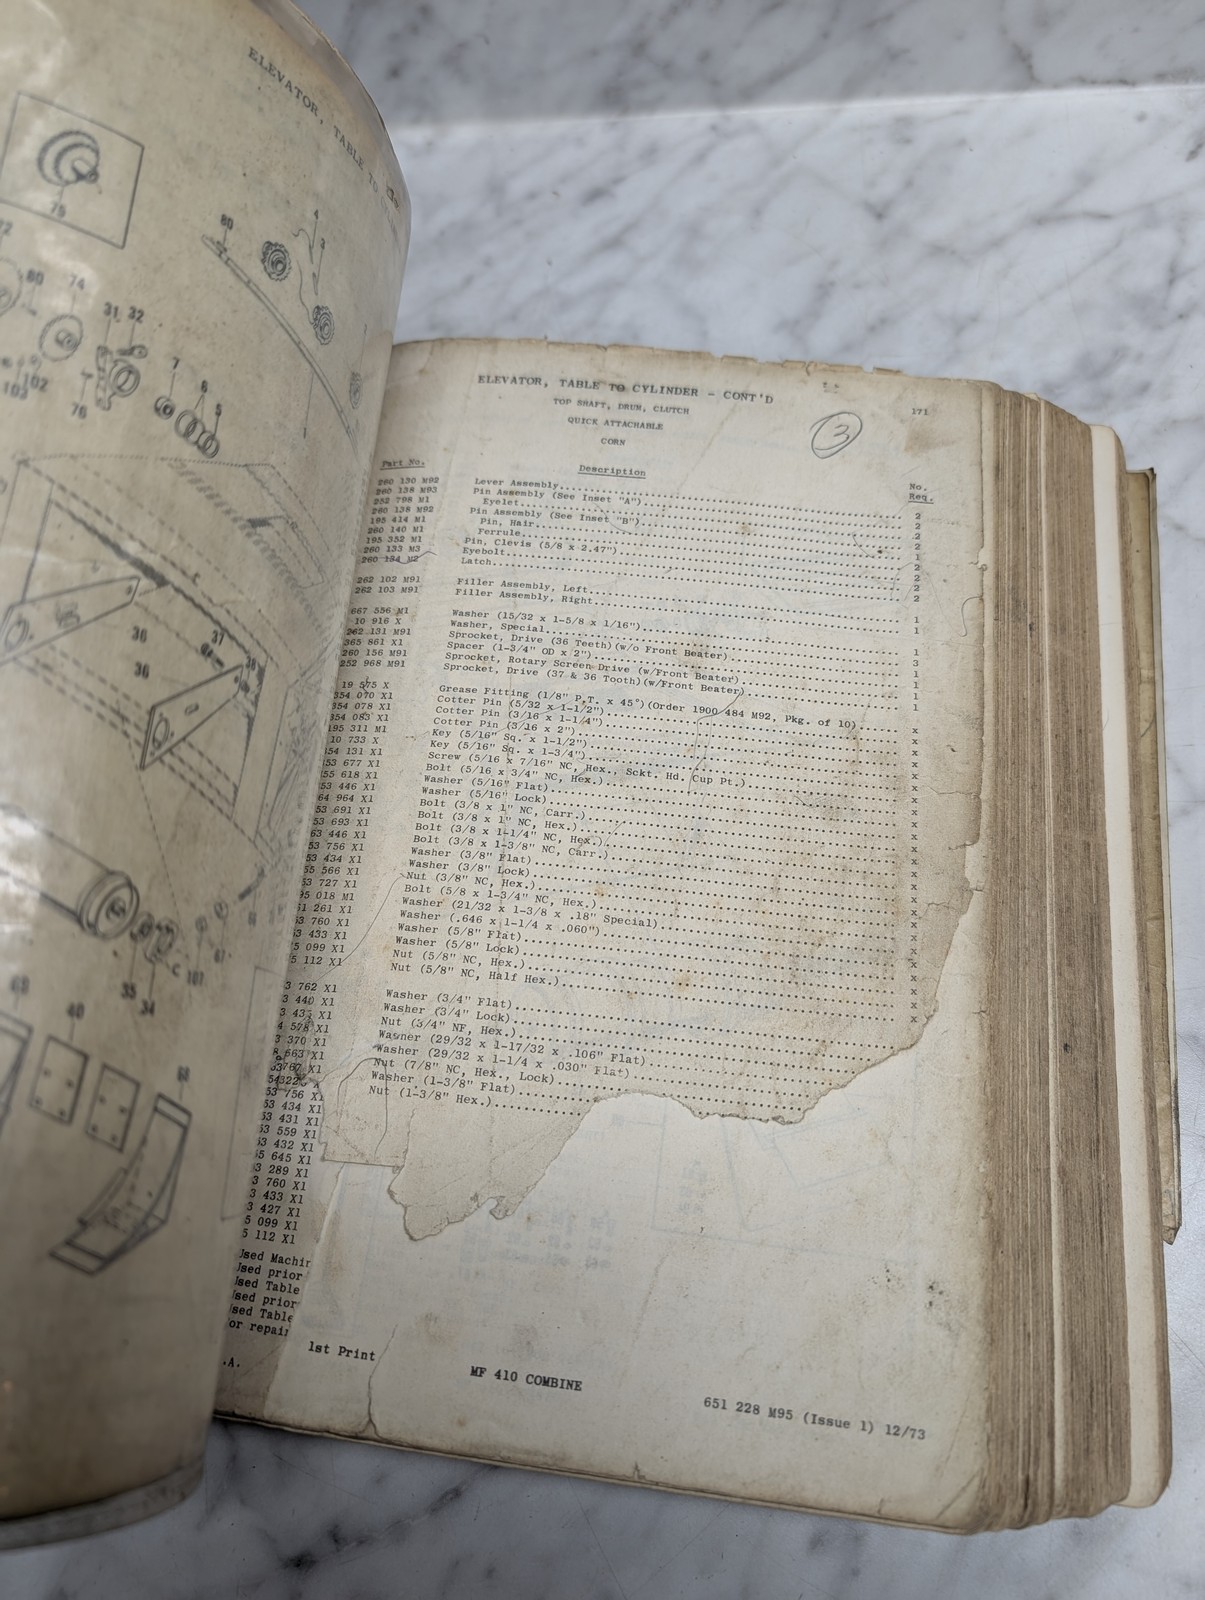 ELEVATOR, TABLE TO
75
80
4
3
80
74
31 32
102
103
7
6
5
76
36
37
38
36
35
34
67
101
40
ELEVATOR, TABLE TO CYLINDER - CONT'D
171
TOP SHAFT, DRUM, CLUTCH
QUICK ATTACHABLE
CORN
3
Part No. Description No. Req.
260 130 M92 Lever Assembly 2
260 138 M93 Pin Assembly (See Inset "A") 2
252 798 M1 Eyelet 2
260 138 M92 Pin Assembly (See Inset "B") 2
195 414 M1 Pin, Hair 1
260 140 M1 Ferrule 2
195 352 M1 Pin, Clevis (5/8 x 2.47") 2
260 133 M3 Eyebolt 2
260 134 M2 Latch 2
262 102 M91 Filler Assembly, Left 1
262 103 M91 Filler Assembly, Right 1
667 556 M1 Washer (15/32 x 1-5/8 x 1/16") 1
10 916 X Washer, Special 3
262 131 M91 Sprocket, Drive (36 Teeth)(w/o Front Beater) 1
365 861 X1 Spacer (1-3/4" OD x 2") 1
260 156 M91 Sprocket, Rotary Screen Drive (w/Front Beater) 1
252 968 M91 Sprocket, Drive (37 & 36 Tooth)(w/Front Beater) 1
19 575 X Grease Fitting (1/8" P.T. x 45°)(Order 1900 484 M92, Pkg. of 10) x
354 070 X1 Cotter Pin (5/32 x 1-1/2") x
354 078 X1 Cotter Pin (3/16 x 1-1/4") x
354 083 X1 Cotter Pin (3/16 x 2") x
195 311 M1 Key (5/16" Sq. x 1-1/2") x
10 733 X Key (5/16" Sq. x 1-3/4") x
54 131 X1 Screw (5/16 x 7/16" NC, Hex., Sckt. Hd. Cup Pt.) x
53 677 X1 Bolt (5/16 x 3/4" NC, Hex.) x
55 618 X1 Washer (5/16" Flat) x
53 446 X1 Washer (5/16" Lock) x
64 964 X1 Bolt (3/8 x 1" NC, Carr.) x
53 691 X1 Bolt (3/8 x 1" NC, Hex.) x
53 693 X1 Bolt (3/8 x 1-1/4" NC, Hex.) x
63 446 X1 Bolt (3/8 x 1-3/8" NC, Carr.) x
53 756 X1 Washer (3/8" Flat) x
53 434 X1 Washer (3/8" Lock) x
55 566 X1 Nut (3/8" NC, Hex.) x
53 727 X1 Bolt (5/8 x 1-3/4" NC, Hex.) x
95 018 M1 Washer (21/32 x 1-3/8 x .18" Special) x
61 261 X1 Washer (.646 x 1-1/4 x .060") x
3 760 X1 Washer (5/8" Flat) x
3 433 X1 Washer (5/8" Lock) x
5 099 X1 Nut (5/8" NC, Hex.) x
5 112 X1 Nut (5/8" NC, Half Hex.) x
3 762 X1 Washer (3/4" Flat)
3 440 X1 Washer (3/4" Lock)
3 435 X1 Nut (3/4" NF, Hex.)
4 578 X1 Washer (29/32 x 1-17/32 x .106" Flat)
3 370 X1 Washer (29/32 x 1-1/4 x .030" Flat)
8 663 X1 Nut (7/8" NC, Hex., Lock)
53767 X1 Washer (1-3/8" Flat)
54322 Nut (1-3/8" Hex.)
53 756 X1
53 434 X1
53 431 X1
53 559 X1
53 432 X1
55 645 X1
3 289 X1
3 760 X1
3 433 X1
3 427 X1
5 099 X1
5 112 X1
Used Machin
Used prior
Used Table
Used prior
Used Table
or repair
.A.
1st Print
MF 410 COMBINE
651 228 M95 (Issue 1) 12/73